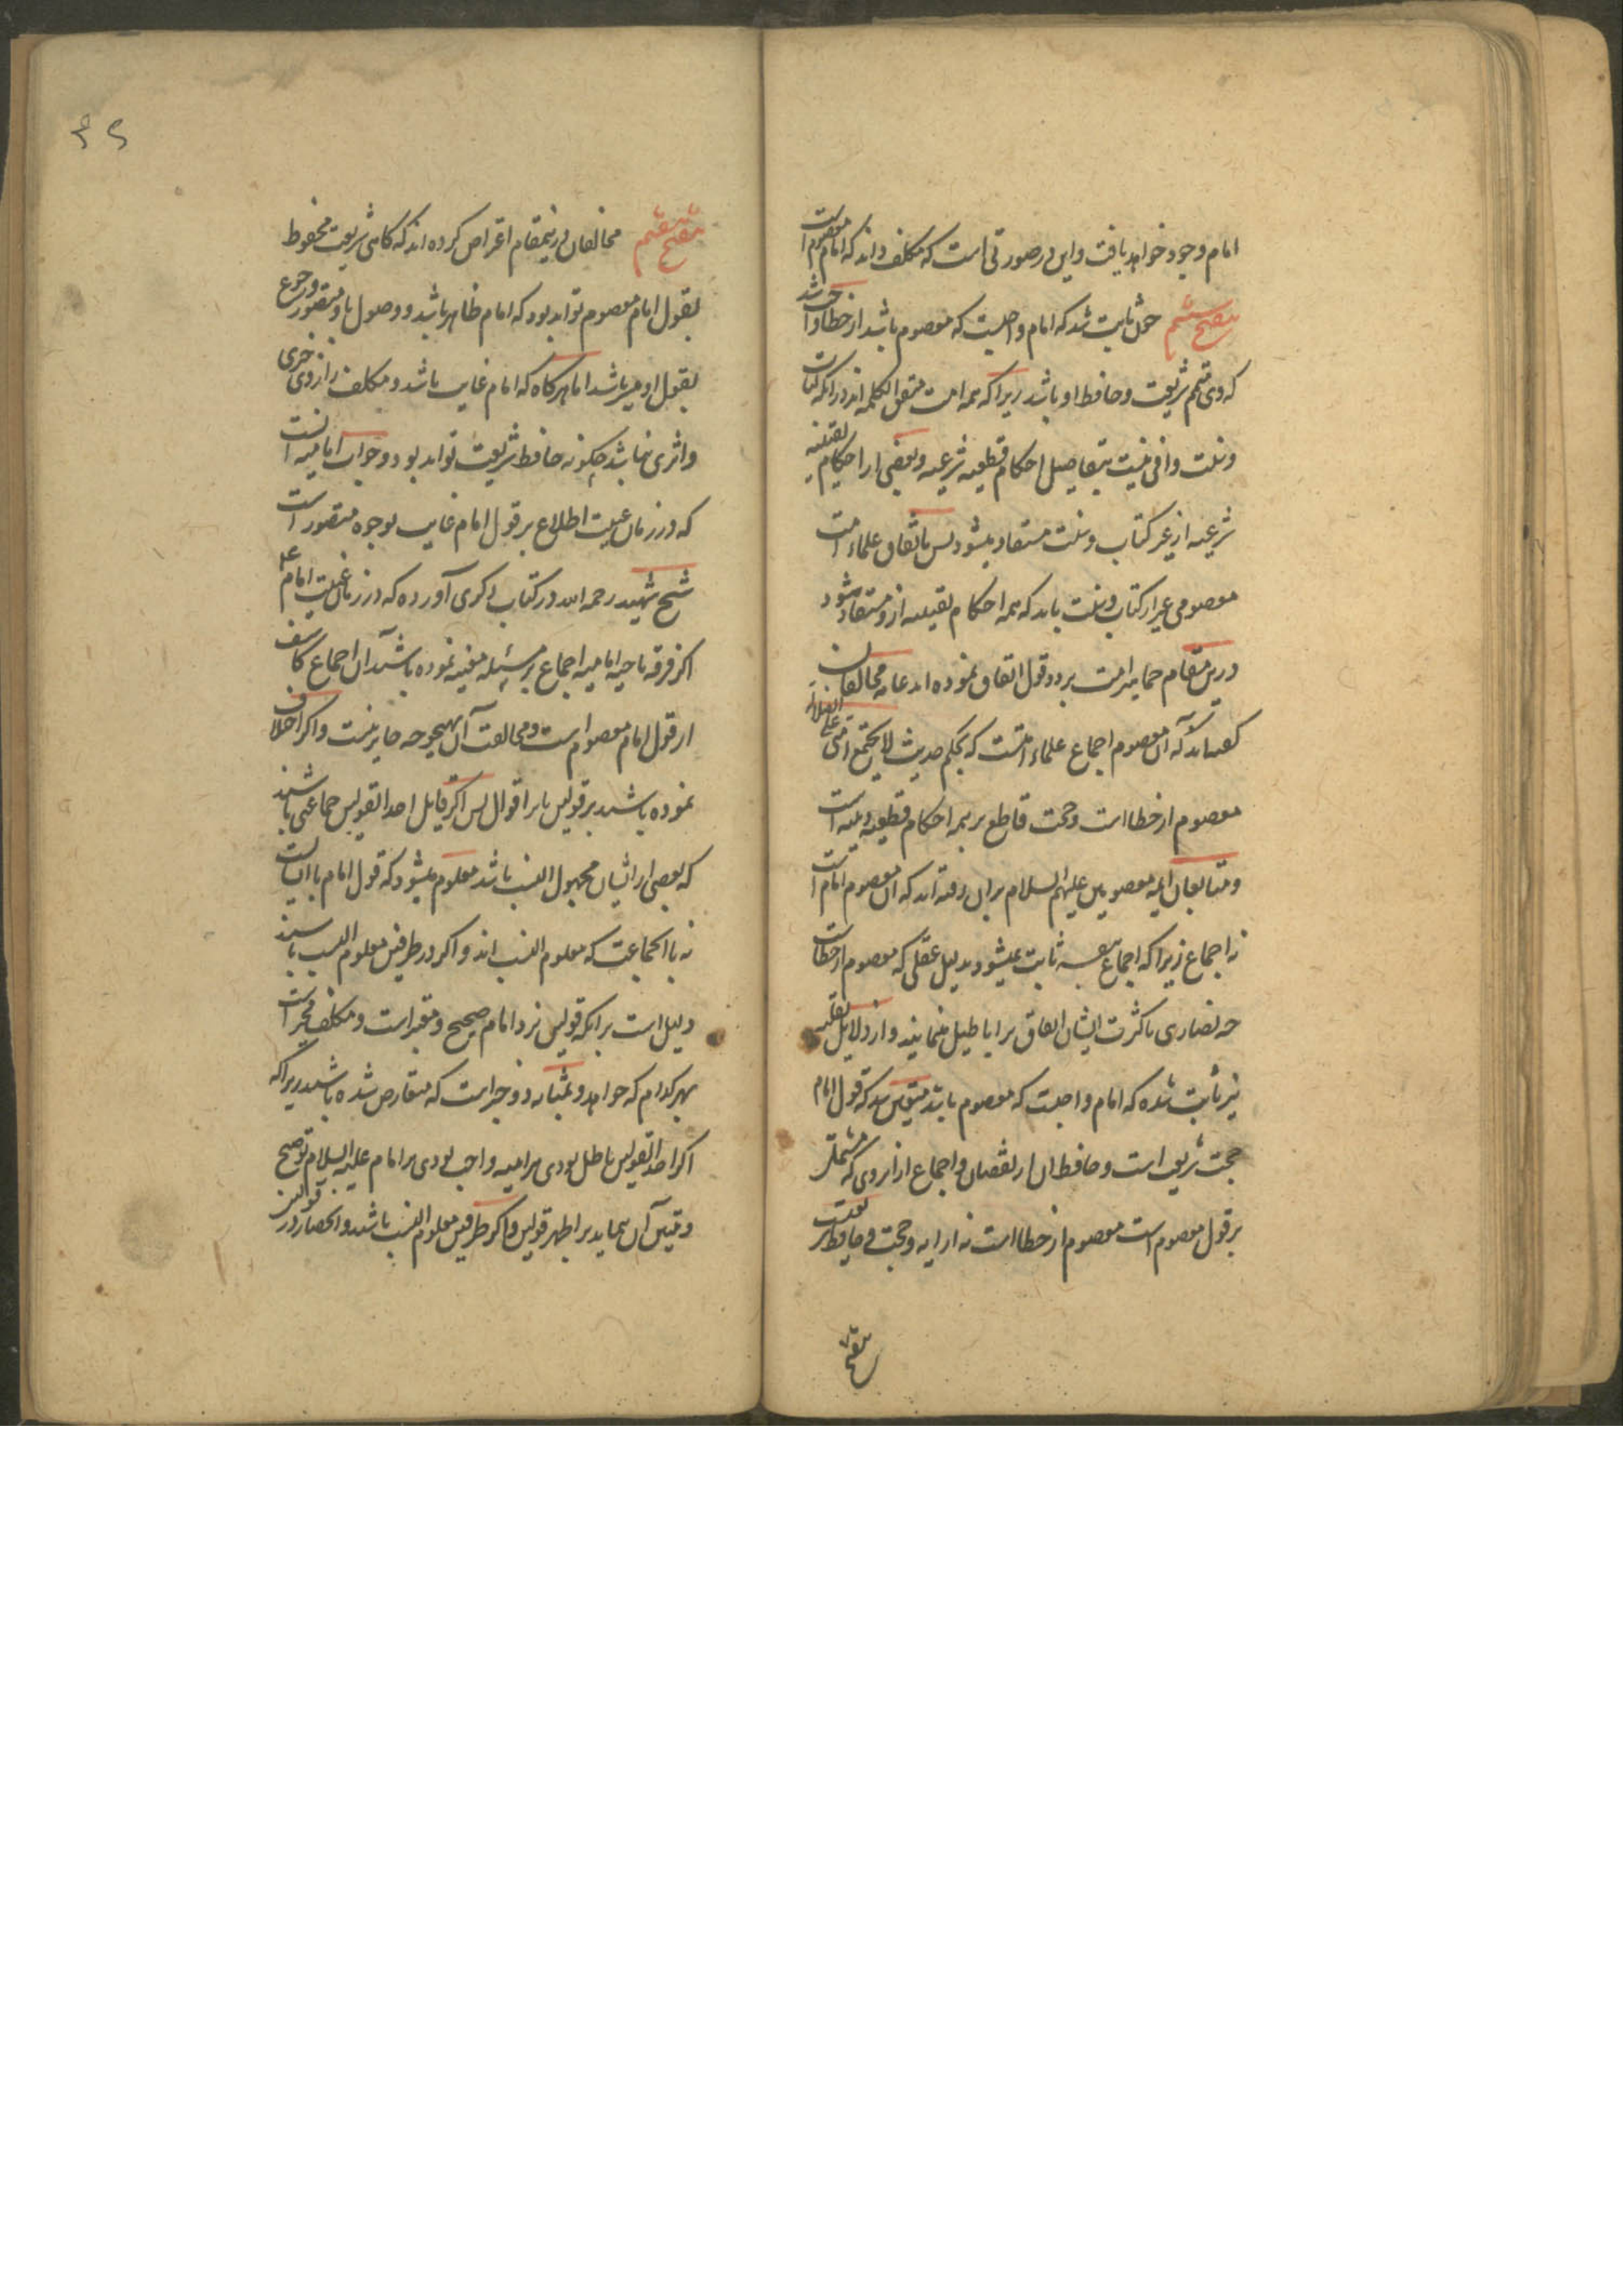 امام وجود خواهد یافت و این در صورتی است که مکلف داند که امام معصوم است
تنقیح ششم چون ثابت شد که امام واجبست که معصوم باشد از خطا واجب شد
که وی متمم شریعت و حافظ او باشد زیرا که همه امت متفق الکلمه اند در آنکه کتاب
و سنت وافی نیست بتفاصیل احکام قطعیه شرعیه و بعضی از احکام یقینیه
شرعیه از غیر کتاب و سنت مستفاد میشود پس باتفاق علماء امت
معصومی غیر از کتاب و سنت باید که همه احکام یقینیه ازو مستفاد شود
درین مقام جماهیر امت بر دو قول اتفاق نموده اند عامه مخالفان
گفته اند که آن معصوم اجماع علماء امتست که بحکم حدیث لا یجتمع امتی علی الضلالة
معصوم از خطا است و حجت قاطع بر همه احکام قطعیه دینیه است
و متابعان ایمه معصومین علیهم السلام بران رفته اند که آن معصوم امام است
نه اجماع زیرا که اجماع بنفسه ثابت نمیشود بدلیل عقلی که معصوم از خطاست
چه نصاری با کثرت ایشان اتفاق بر اباطیل مینمایند و از دلایل نقلیه
نیز ثابت شده که امام واجبست که معصوم باشد متیقن شد که قول امام
حجت شریعت است و حافظ آن از نقصان و اجماع از آنروی که مشتمل
بر قول معصوم است معصوم از خطا است نه از آرا و حجت و حافظ شریعت
تنقیح
۴۶
تنقیح هفتم مخالفان درینمقام اعتراض کرده اند که گاهی شریعت محفوظ
بقول امام معصوم تواند بود که امام ظاهر باشد و وصول باو متصور و رجوع
بقول او میسر باشد اما هرگاه که امام غایب باشد و مکلف را از وی خبری
و اثری نباشد چگونه حافظ شریعت تواند بود و جواب امامیه آنست
که در زمان غیبت اطلاع بر قول امام غایب بوجوه متصور است
شیخ شهید رحمه الله در کتاب ذکری آورده که در زمان غیبت امام ع
اگر فرقه ناجیه امامیه اجماع بر مسئله معینه نموده باشند آن اجماع کاشف
از قول امام معصوم است و مخالفت آن بهیچوجه جایز نیست و اگر اختلاف
نموده باشند بر قولین یا بر اقوال پس اگر قایل احد القولین جماعتی باشند
که بعضی از ایشان مجهول النسب باشد معلوم میشود که قول امام با آنهاست
نه با آنجماعت که معلوم النسب اند و اگر در طرفین معلوم النسب باشند
دلیل است بر آنکه قولین نزد امام صحیح و معتبر است و مکلف مخیر است
بهر کدام که خواهد و بمثابه دو خبر است که متعارض شده باشند زیرا که
اگر احد القولین باطل بودی هر اینه واجب بودی بر امام علیه السلام توضیح
و تبیین آن نماید بر اظهر قولین و اگر طرفین معلوم النسب باشند و انحصار در قولین